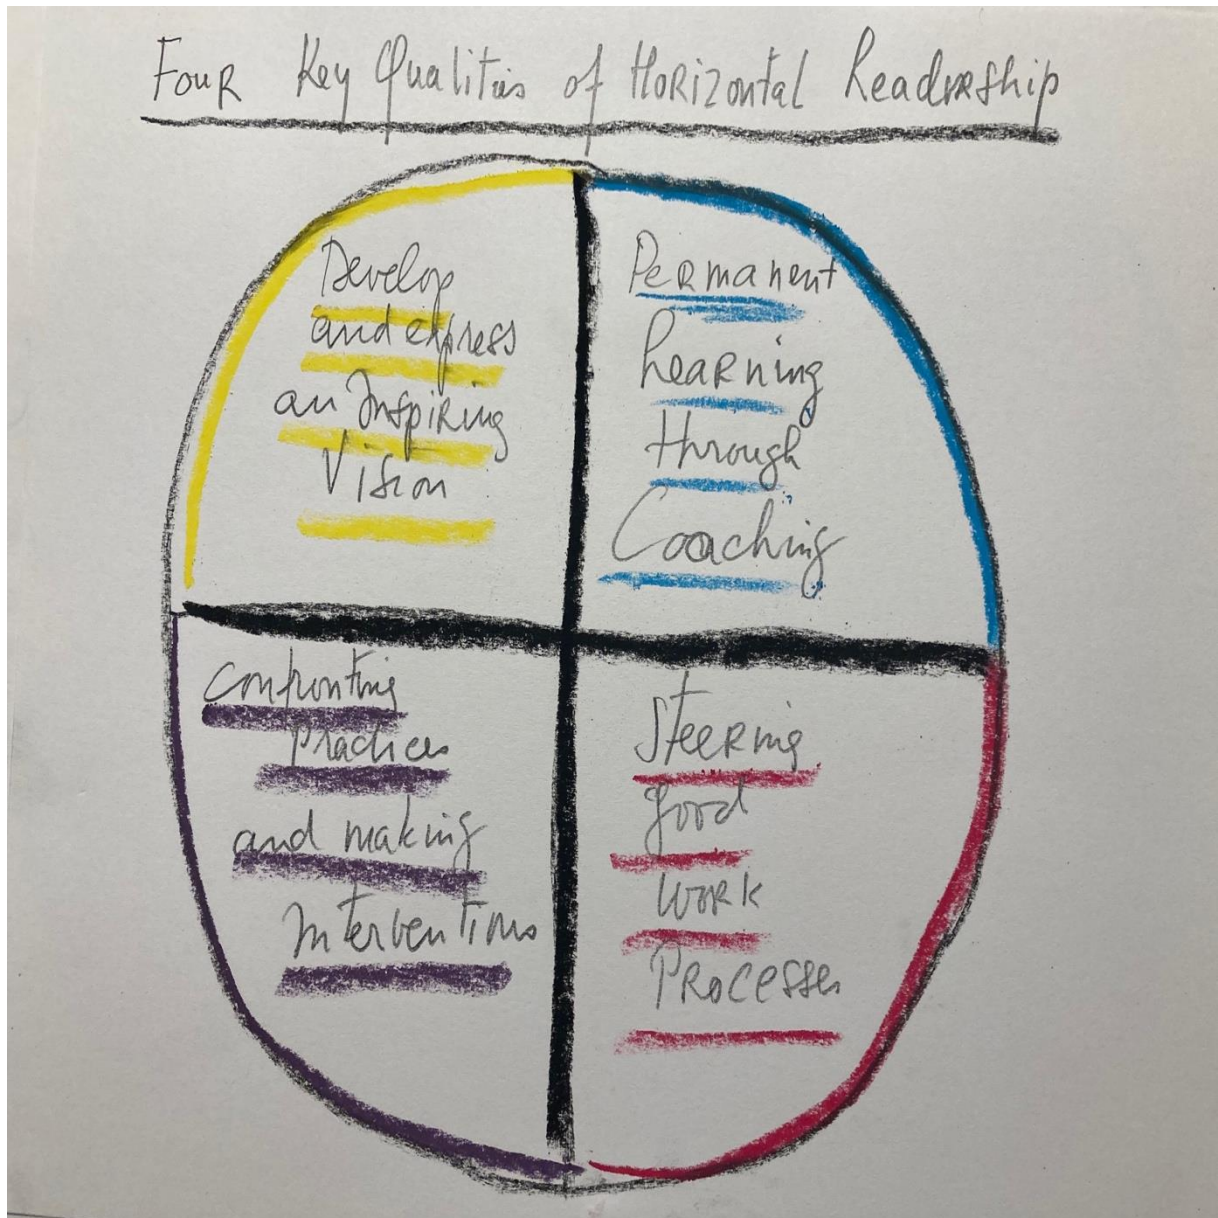 Four Key Qualities of Horizontal Leadership
Develop
and express
an Inspiring
Vision
Permanent
Learning
through
Coaching
Confronting
Practices
and making
Interventions
Steering
good
work
Processes